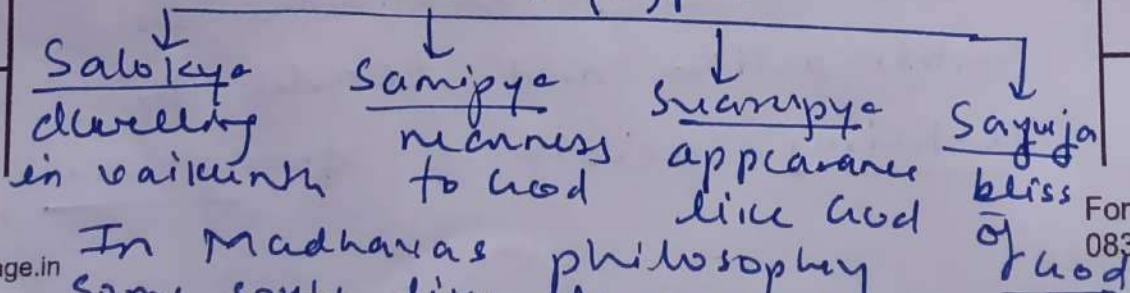 Salokya
dwelling
in vaikunth
Samipya
nearness
to God
Swarupya
appearance
like God
Sayuja
bliss
of God
For
083
In Madhavas philosophy
nge.in
some souls